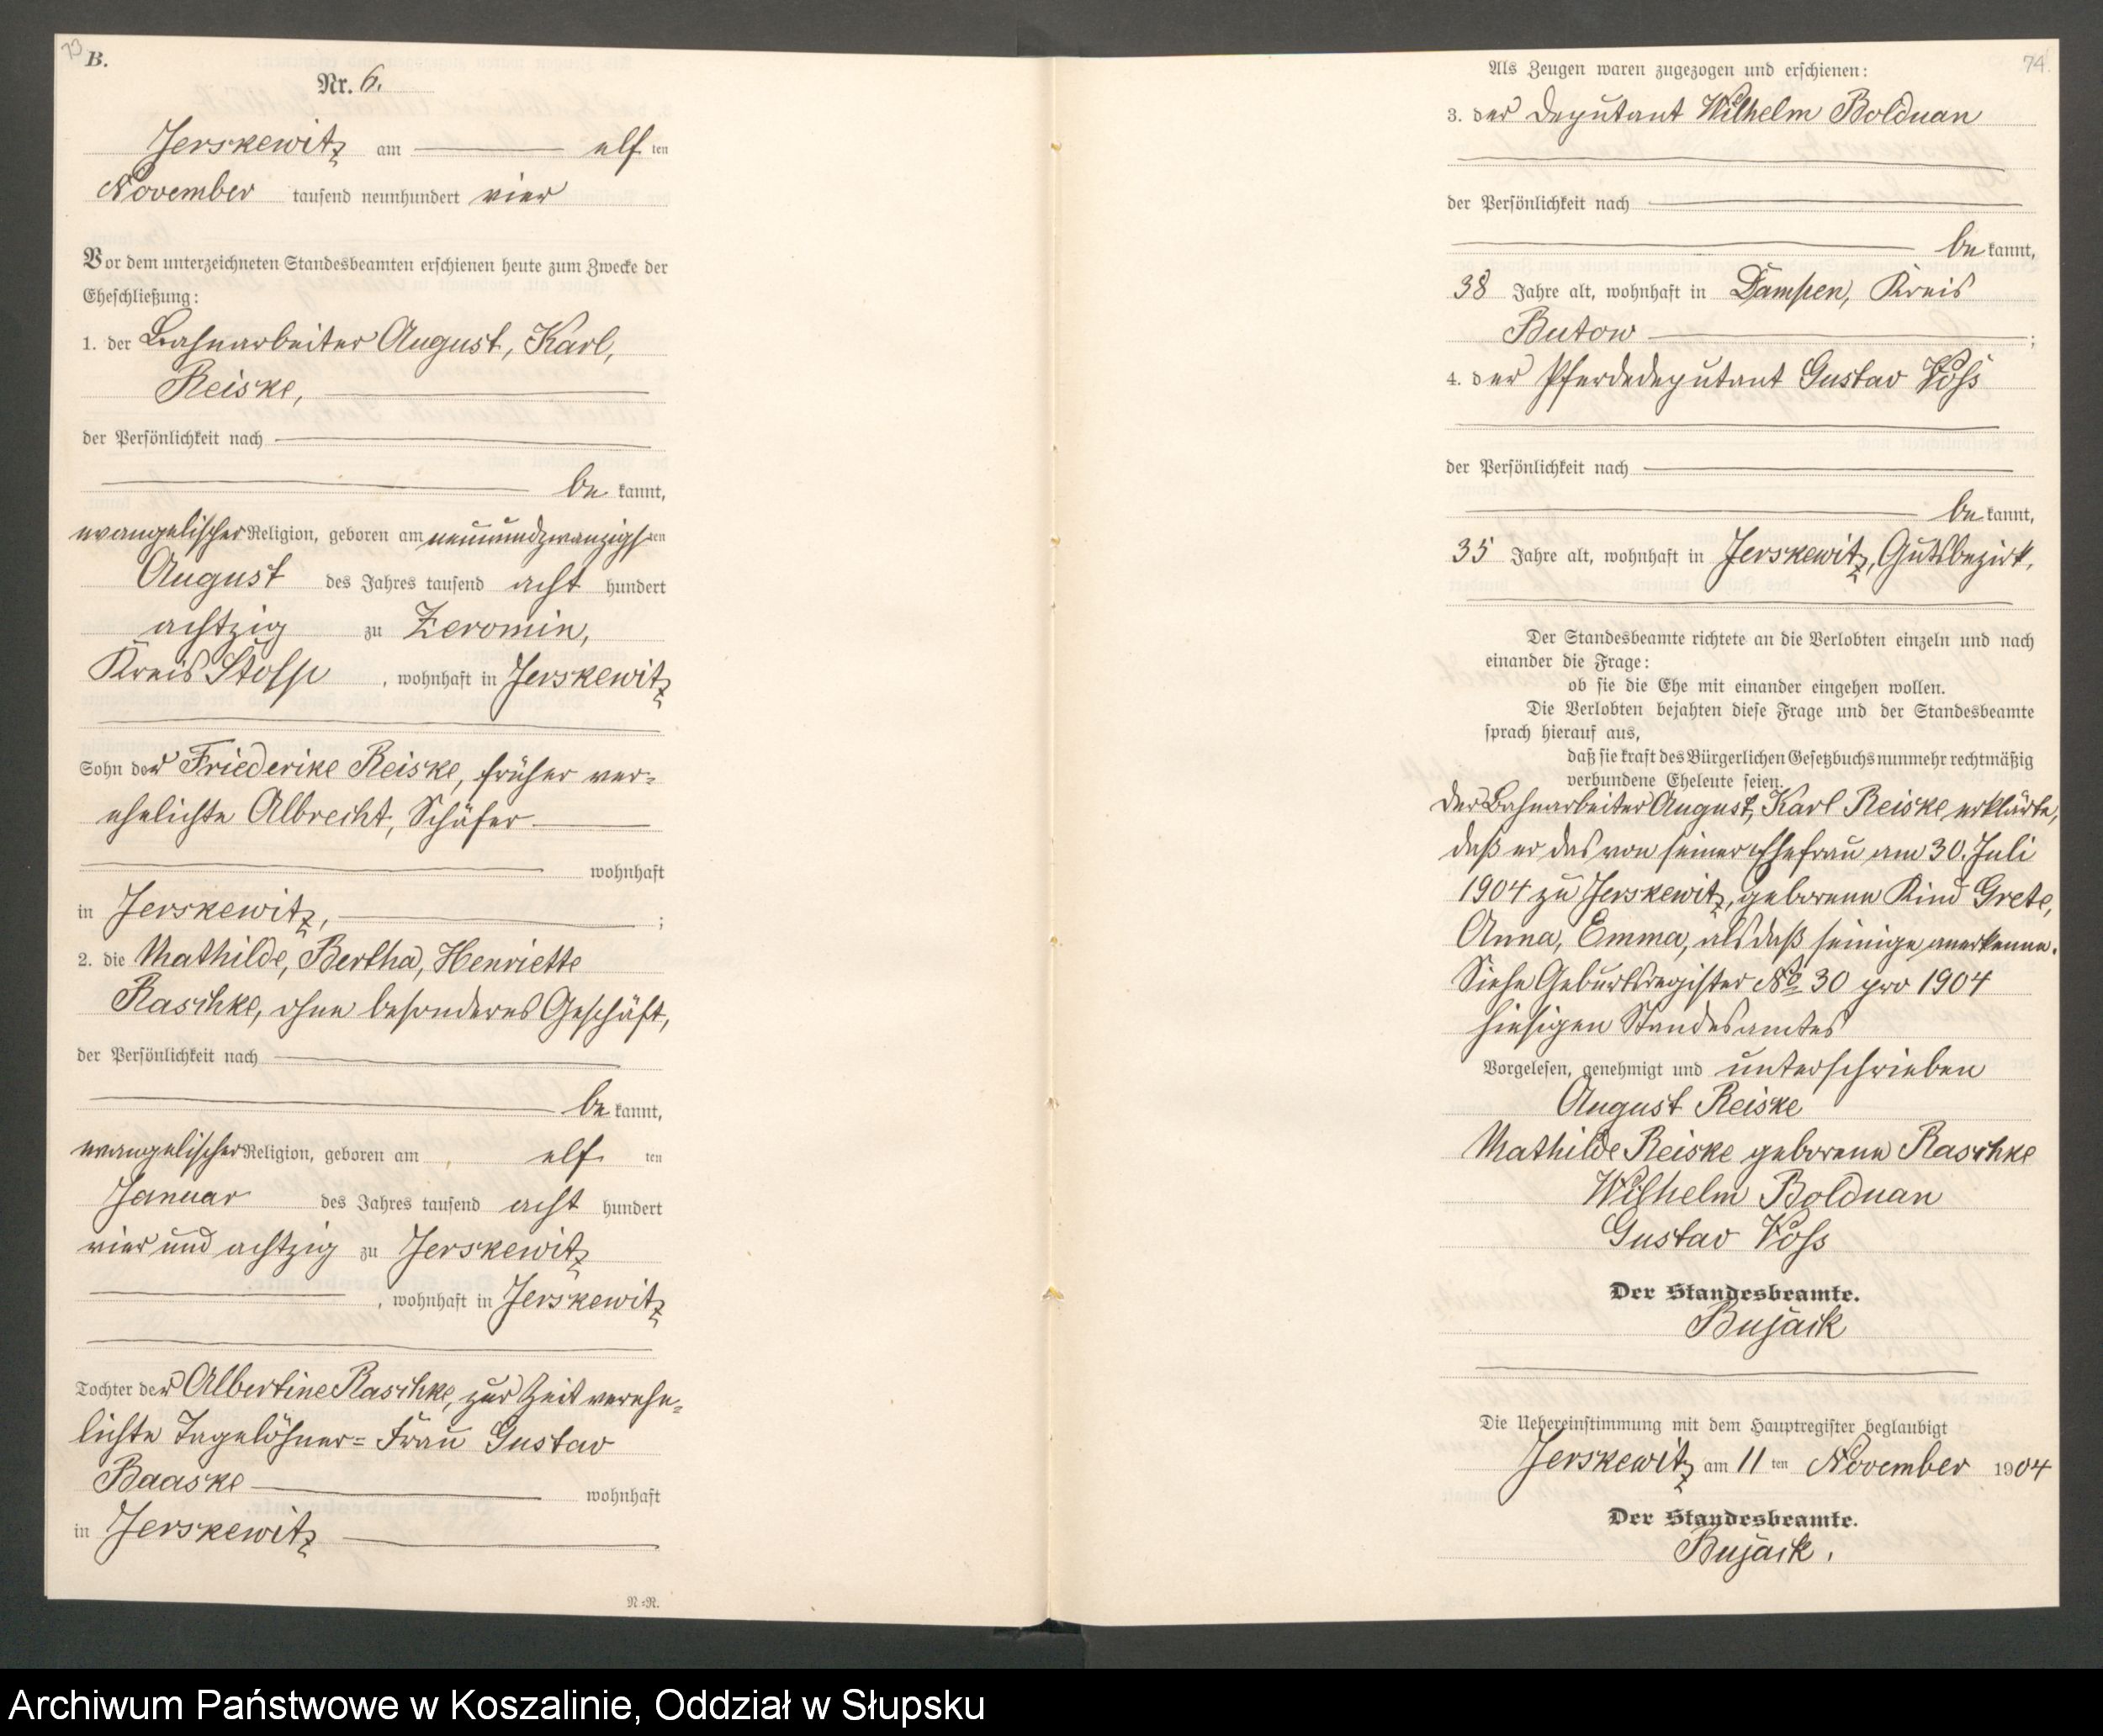 73
B.
Nr. 6.
Jerskewitz am elf ten
November tausend neunhundert vier
Vor dem unterzeichneten Standesbeamten erschienen heute zum Zwecke der
Eheschließung:
1. der Bahnarbeiter August, Karl,
Reiske,
der Persönlichkeit nach
be kannt,
evangelischer Religion, geboren am neunundzwanzigsten
August des Jahres tausend acht hundert
achtzig zu Zeromin,
Kreis Stolp, wohnhaft in Jerskewitz
Sohn der Friederike Reiske, früher ver-
ehelichte Albrecht, Schäfer
wohnhaft
in Jerskewitz, ;
2. die Mathilde, Bertha, Henriette
Raschke, ohne besonderes Geschäft,
der Persönlichkeit nach
be kannt,
evangelischer Religion, geboren am elf ten
Januar des Jahres tausend acht hundert
vier und achtzig zu Jerskewitz
, wohnhaft in Jerskewitz
Tochter der Albertine Raschke, zur Zeit verehe-
lichte Tagelöhner-Frau Gustav
Baaske wohnhaft
in Jerskewitz
N=R.
74.
Als Zeugen waren zugezogen und erschienen:
3. der Deputant Wilhelm Bolduan
der Persönlichkeit nach
be kannt,
38 Jahre alt, wohnhaft in Dampen, Kreis
Butow ;
4. der Pferdedeputant Gustav Voss
der Persönlichkeit nach
be kannt,
35 Jahre alt, wohnhaft in Jerskewitz, Gutsbezirk.
Der Standesbeamte richtete an die Verlobten einzeln und nach
einander die Frage:
ob sie die Ehe mit einander eingehen wollen.
Die Verlobten bejahten diese Frage und der Standesbeamte
sprach hierauf aus,
daß sie kraft des Bürgerlichen Gesetzbuchs nunmehr rechtmäßig
verbundene Eheleute seien.
Der Bahnarbeiter August, Karl Reiske erklärte,
daß er das von seiner Ehefrau am 30. Juli
1904 zu Jerskewitz, geborene Kind Grete,
Anna, Emma, als daß seinige anerkenne.
Siehe Geburtsregister No 30 pro 1904
hiesigen Standesamtes
Vorgelesen, genehmigt und unterschrieben
August Reiske
Mathilde Reiske geborene Raschke
Wilhelm Bolduan
Gustav Voss
Der Standesbeamte.
Bujack
Die Uebereinstimmung mit dem Hauptregister beglaubigt
Jerskewitz am 11 ten November 1904
Der Standesbeamte.
Bujack.
Archiwum Państwowe w Koszalinie, Oddział w Słupsku